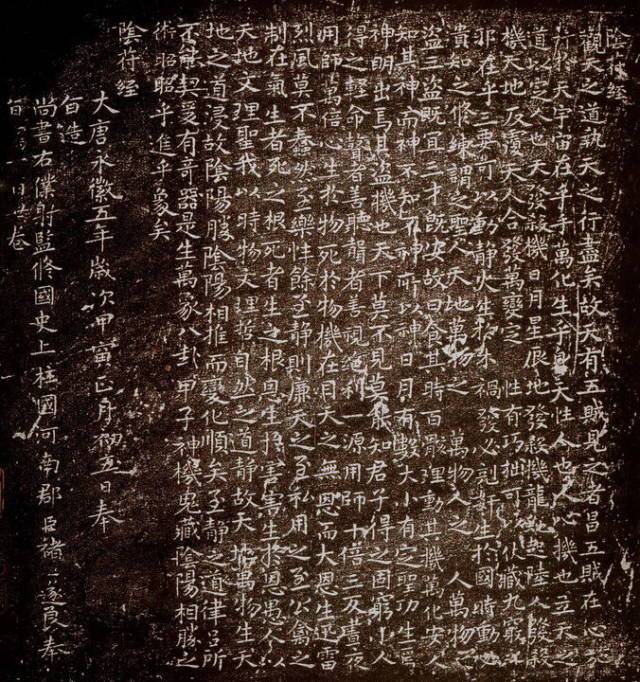 陰符經
觀天之道執天之行盡矣故天有五賊見之者昌五賊在心施
行於天宇宙在乎手萬化生乎身天性人也人心機也立天之
道以定人也天發殺機日月星辰地發殺機龍蛇起陸人發殺
機天地反覆天人合發萬變定性有巧拙可以伏藏九竅之
邪在乎三要可以動靜火生於木禍發必剋奸生於國時動必
潰知之修練謂之聖人天地萬物之萬物人之人萬物之
盜三盜既宜三才既安故曰食其時百骸理動其機萬化安人
知其神而神不知不神所以神日月有數大小有定聖功生焉
神明出焉其盜機也天下莫不見莫能知君子得之固窮小人
得之輕命瞽者善聽聾者善視絕利一源用師十倍三反晝夜
用師萬倍心生於物死於物機在目天之無恩而大恩生迅雷
烈風莫不蠢然至樂性餘至靜則廉天之至私用之至公禽之
制在氣生者死之根死者生之根恩生於害害生於恩愚人以
天地文理聖我以時物文理哲自然之道靜故天地萬物生天
地之道浸故陰陽勝陰陽相推而變化順矣至靜之道律呂所
不能契爰有奇器是生萬象八卦甲子神機鬼藏陰陽相勝之
術昭昭乎進乎象矣
陰符經
大唐永徽五年歲次甲寅正月初五日奉
旨造
尚書右僕射監修國史上柱國河南郡臣褚遂良奉
旨一百卷